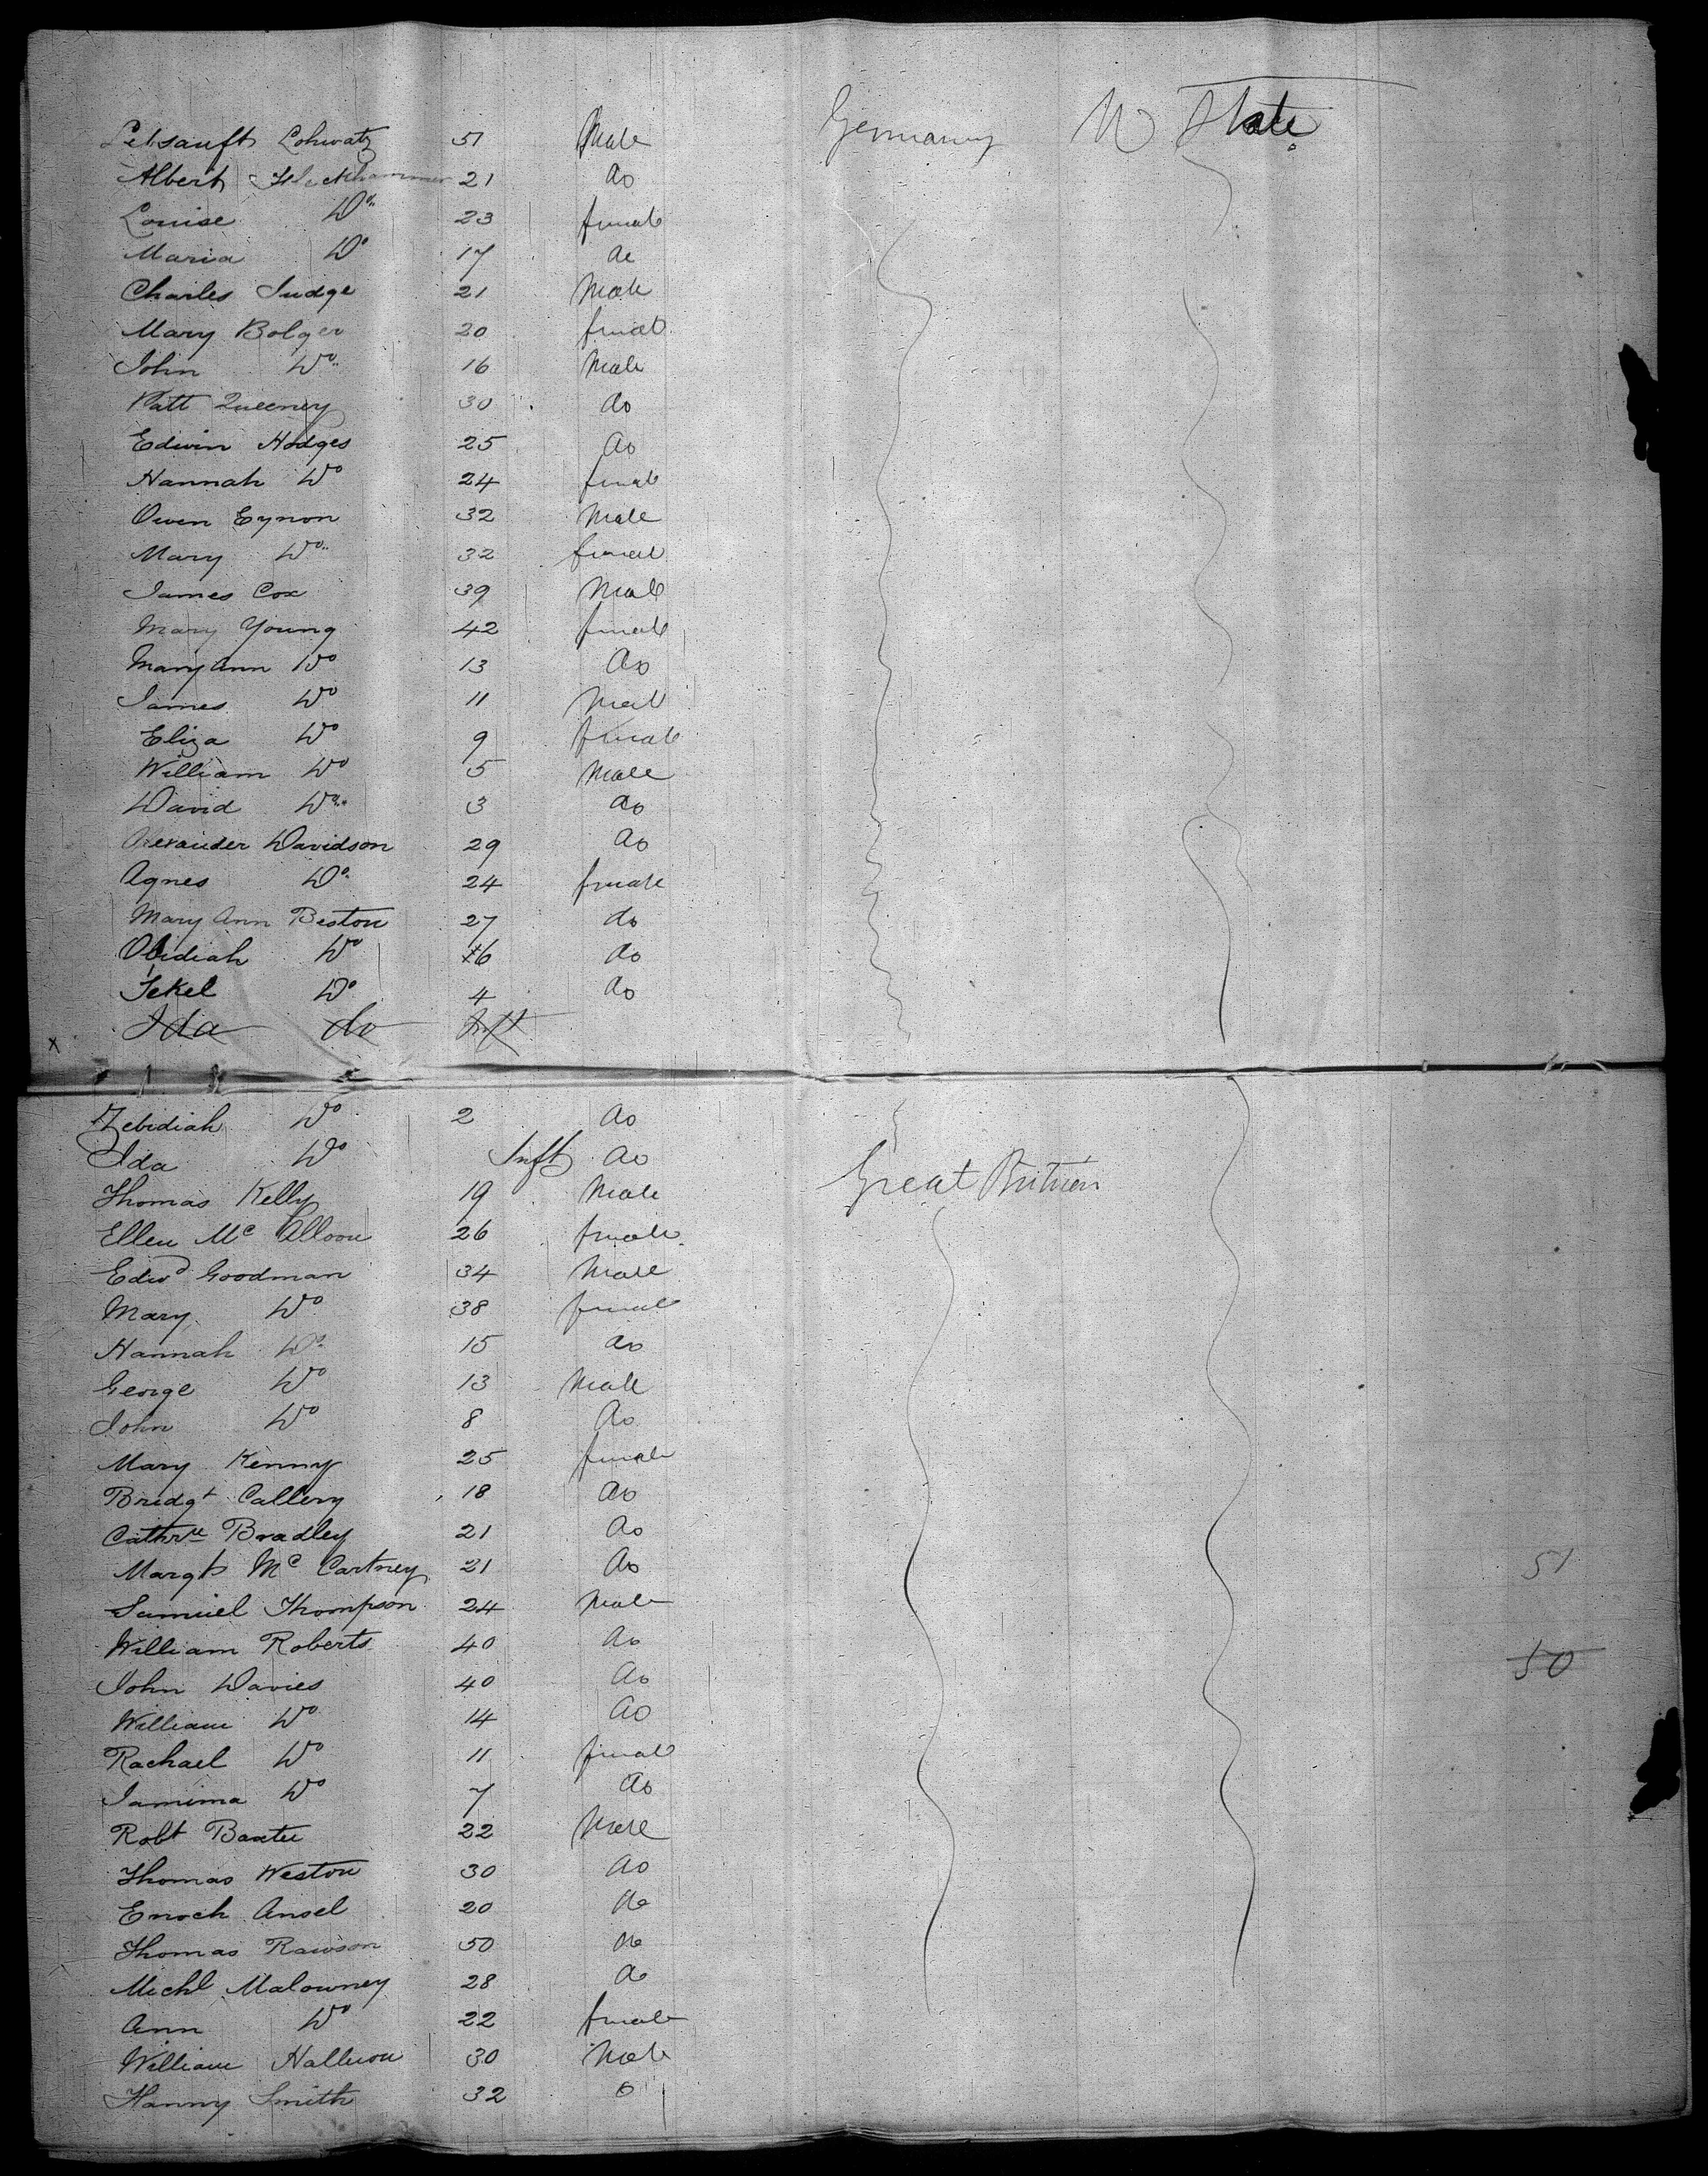 Lohwatz 51 Male Germany U State
Albert 21 do
Louise Do 23 female
Maria Do 17 do
Charles Judge 21 Male
Mary Bolger 20 female
John Do 16 Male
Patt Queeney 30 do
Edwin Hodges 25 do
Hannah Do 24 female
Owen Eynon 32 Male
Mary Do 32 female
James Cox 39 Male
Mary Young 42 female
Mary Ann Do 13 do
James Do 11 Male
Eliza Do 9 female
William Do 5 Male
David Do 3 do
Alexander Davidson 29 do
Agnes Do 24 female
Mary Ann Beston 27 do
Obidiah Do 6 do
Jekel Do 4 do
x Ida do Inft
Zebidiah Do 2 do
Ida Do Inft do
Thomas Kelly 19 Male Great Britain
Ellen Mc Alloon 26 female
Edwd Goodman 34 Male
Mary Do 38 female
Hannah Do 15 do
George Do 13 Male
John Do 8 do
Mary Kenny 25 female
Bridgt Callery 18 do
Cathrne Bradley 21 do
Margt Mc Cartney 21 do 51
Samuel Thompson 24 Male
William Roberts 40 do 50
John Davies 40 do
William Do 14 do
Rachael Do 11 female
Jamima Do 7 do
Robt Baxter 22 Male
Thomas Weston 30 do
Enoch Ansel 20 do
Thomas Rawson 50 do
Michl Malowney 28 do
Ann Do 22 female
William 30 Male
Hanny Smith 32